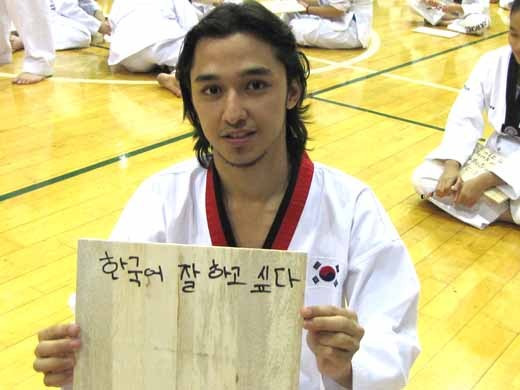 한국어 잘 하고 싶다